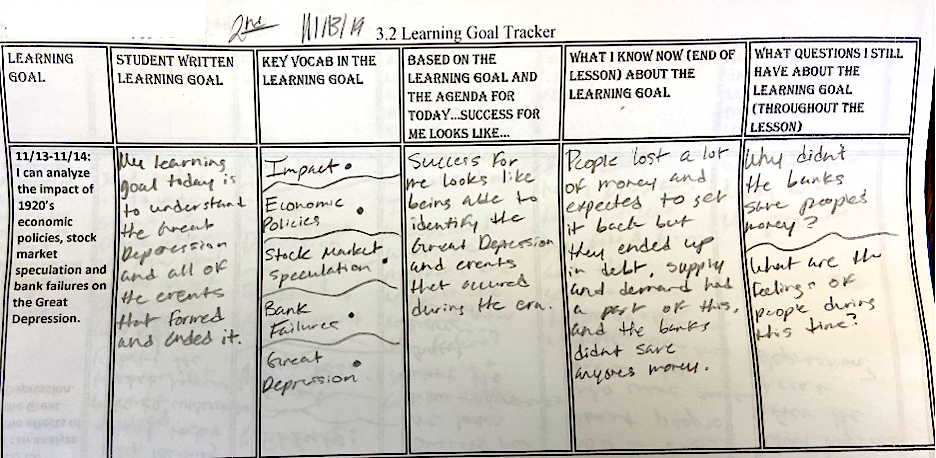 2nd 11/13/19 3.2 Learning Goal Tracker
LEARNING
GOAL
STUDENT WRITTEN
LEARNING GOAL
KEY VOCAB IN THE
LEARNING GOAL
BASED ON THE
LEARNING GOAL AND
THE AGENDA FOR
TODAY...SUCCESS FOR
ME LOOKS LIKE...
WHAT I KNOW NOW (END OF
LESSON) ABOUT THE
LEARNING GOAL
WHAT QUESTIONS I STILL
HAVE ABOUT THE
LEARNING GOAL
(THROUGHOUT THE
LESSON)
11/13-11/14:
I can analyze
the impact of
1920's
economic
policies, stock
market
speculation and
bank failures on
the Great
Depression.
My learning
goal today is
to understand
the Great
Depression
and all of
the events
that formed
and ended it.
Impact
Economic
Policies
Stock Market
Speculation
Bank
Failures
Great
Depression
Success for
me looks like
being able to
identify the
Great Depression
and events
that occured
during the era.
People lost a lot
of money and
expected to get
it back but
they ended up
in debt. Supply
and demand had
a part of this,
and the banks
didnt save
anyones money.
Why didn't
the banks
save peoples
money?
What are the
feelings of
people during
this time?